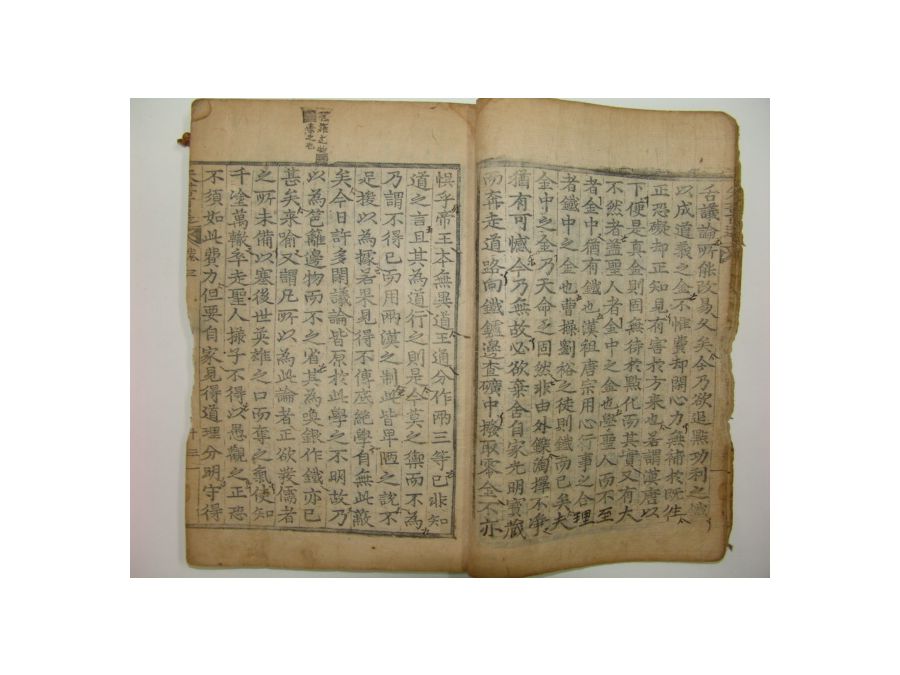 舌議論所能改易久矣今乃欲追點功利之鐵
以成道義之金不惟費却閑心力無補於既往
正恐礙却正知見有害於方來也若謂漢唐以
下便是真金則固無待於點化而其實又有大
不然者盖聖人者金中之金也學聖人而不至
者金中猶有鐵也漢祖唐宗用心行事之合理
者鐵中之金也曹操劉裕之徒則鐵而已矣夫
金中之金乃天命之固然非由外鑠淘擇不淨
猶有可憾今乃無故必欲棄舍自家光明寶藏
而奔走道路向鐵鑪邊查礦中撥取零金不亦
悞乎帝王本無異道王通分作兩三等已非知
道之言且其為道行之則是今莫之禦而不為
乃謂不得已而用兩漢之制此皆卑陋之說不
足援以為據若果見得不傳底絶學自無此蔽
矣今日許多閑議論皆原於此學之不明故乃
以為笆籬邊物而不之省其為喚銀作鐵亦已
甚矣來喻又謂凡所以為此論者正欲發儒者
之所未備以塞後世英雄之口而奪之氣使知
千塗萬轍卒走聖人㨾子不得以愚觀之正恐
不須如此費力但要自家見得道理分明守得